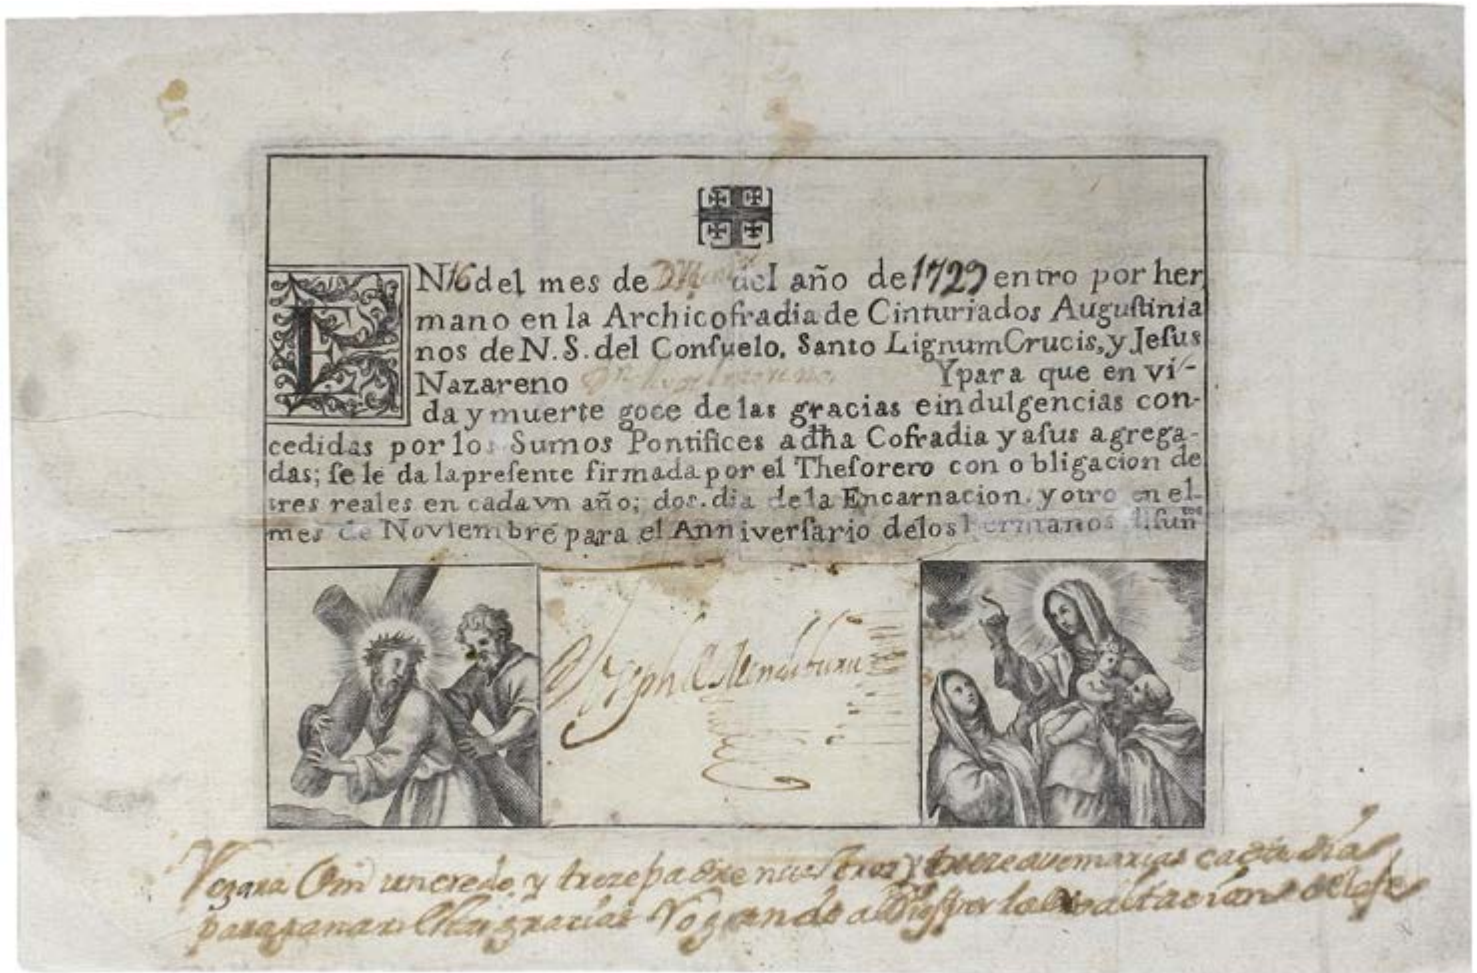 EN 16 del mes de del año de 1729 entro por her
mano en la Archicofradia de Cinturiados Auguſtinia
nos de N. S. del Conſuelo. Santo Lignum Crucis, y Jeſus
Nazareno Y para que en vi-
da y muerte goce de las gracias e indulgencias con-
cedidas por los Sumos Pontifices a dħa Cofradia y a ſus agrega-
das; ſe le da la preſente firmada por el Theſorero con obligacion de
tres reales en cada vn año; dos. dia de la Encarnacion. y otro en el
mes de Noviembre para el Anniverſario de los hermanos difuntos
Joseph de Mendiburu
un credo y treze padre nuestros y treze avemarias cada dia
para ganar gracias Rogando a Dios por la exaltacion de la fe